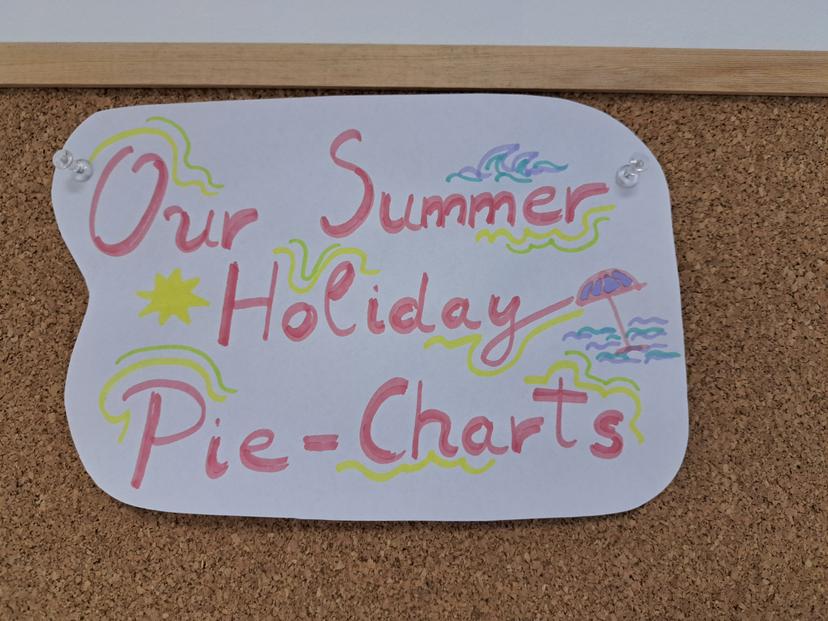 Our Summer
Holiday
Pie-Charts